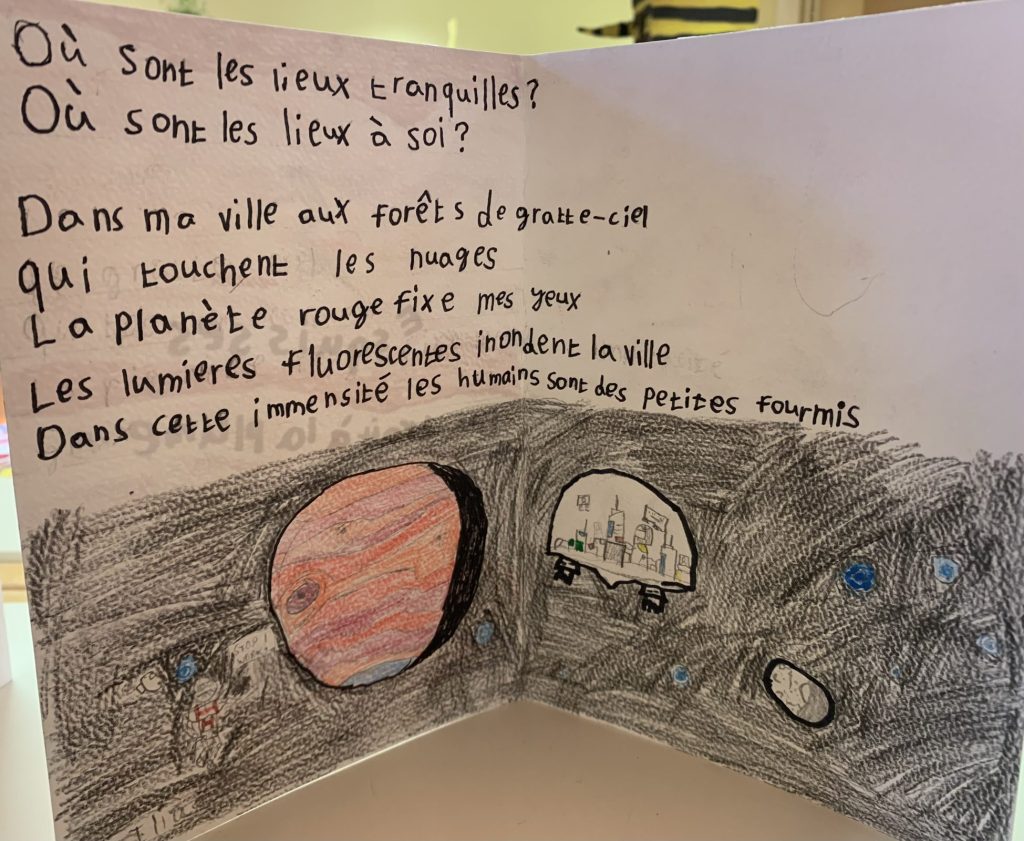 Où sont les lieux tranquilles?
Où sont les lieux à soi?
Dans ma ville aux forêts de gratte-ciel
qui touchent les nuages
La planète rouge fixe mes yeux
Les lumieres fluorescentes inondent la ville
Dans cette immensité les humains sont des petites fourmis
STOP!